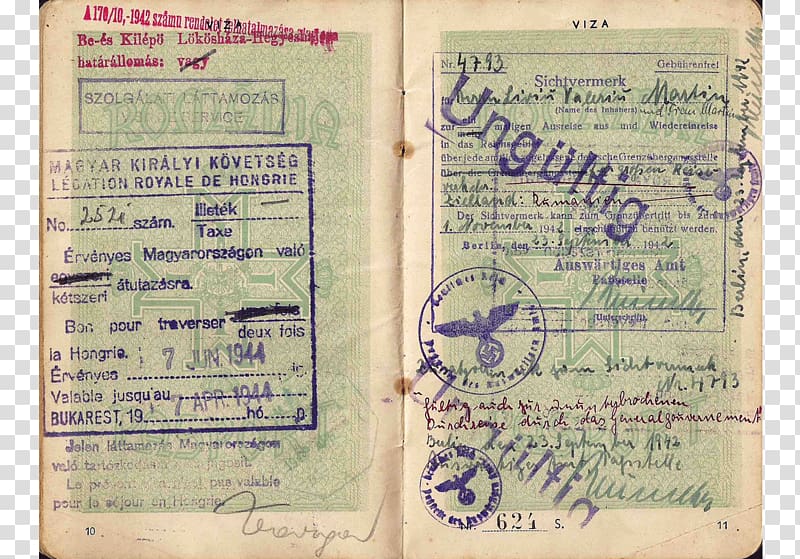 VIZA
A 176/10,-1942 számu rendelet felhatalmazása alapján
Be-és Kilépő Lökösháza-Hegyeshalom
határállomás: vagy
SZOLGÁLATI LÁTTAMOZÁS
VISA DE SERVICE
MAGYAR KIRÁLYI KÖVETSÉG
LÉGATION ROYALE DE HONGRIE
No. 252 szám. Illeték
Taxe
Érvényes Magyarországon való
egyszeri átutazásra.
kétszeri
Bon pour traverser
deux fois
la Hongrie.
7 JUN 1944
Érvényes ig.
Valable jusqu'au 7 APR. 1944
BUKAREST, 19 hó. p.
Jelen láttamozás Magyarországon
való tartózkodásra nem jogosit.
Le présent visa n'est pas valable
pour le séjour en Hongrie
10
VIZA
Nr. 4793 Gebührenfrei
Sichtvermerk
Martin
(Name des Inhabers) und Frau Martin
zu ein maligen Ausreise aus und Wiedereinreise
in das Reichsgebiet
über jede amtlich zugelassene deutsche Grenzübergangsstelle
über die
Zielland: Rumänien
Der Sichtvermerk kann zum Grenzübertritt bis zum
1. November 1942 einschließlich benutzt werden.
Berlin, den 23. September 1942
Auswärtiges Amt
Paßstelle
(Unterschrift)
Ungültig
zum Sichtvermerk
Nr. 4793
Gültig auch zur
Durchreise durch das Generalgouvernement
Berlin, den 23. September 1942
Auswärtiges Amt Paßstelle
Ungültig
Nr. 624 S.
11